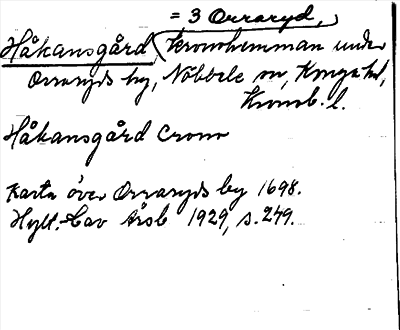 = 3 Orraryd,
Håkansgård, kronohemman under
Orraryds by, Nöbbele sn, Konga hd,
Kronob. l.
Håkansgård Crono
Karta över Orraryds by 1698.
Hylt.-Cav Årsb 1929, s. 249.